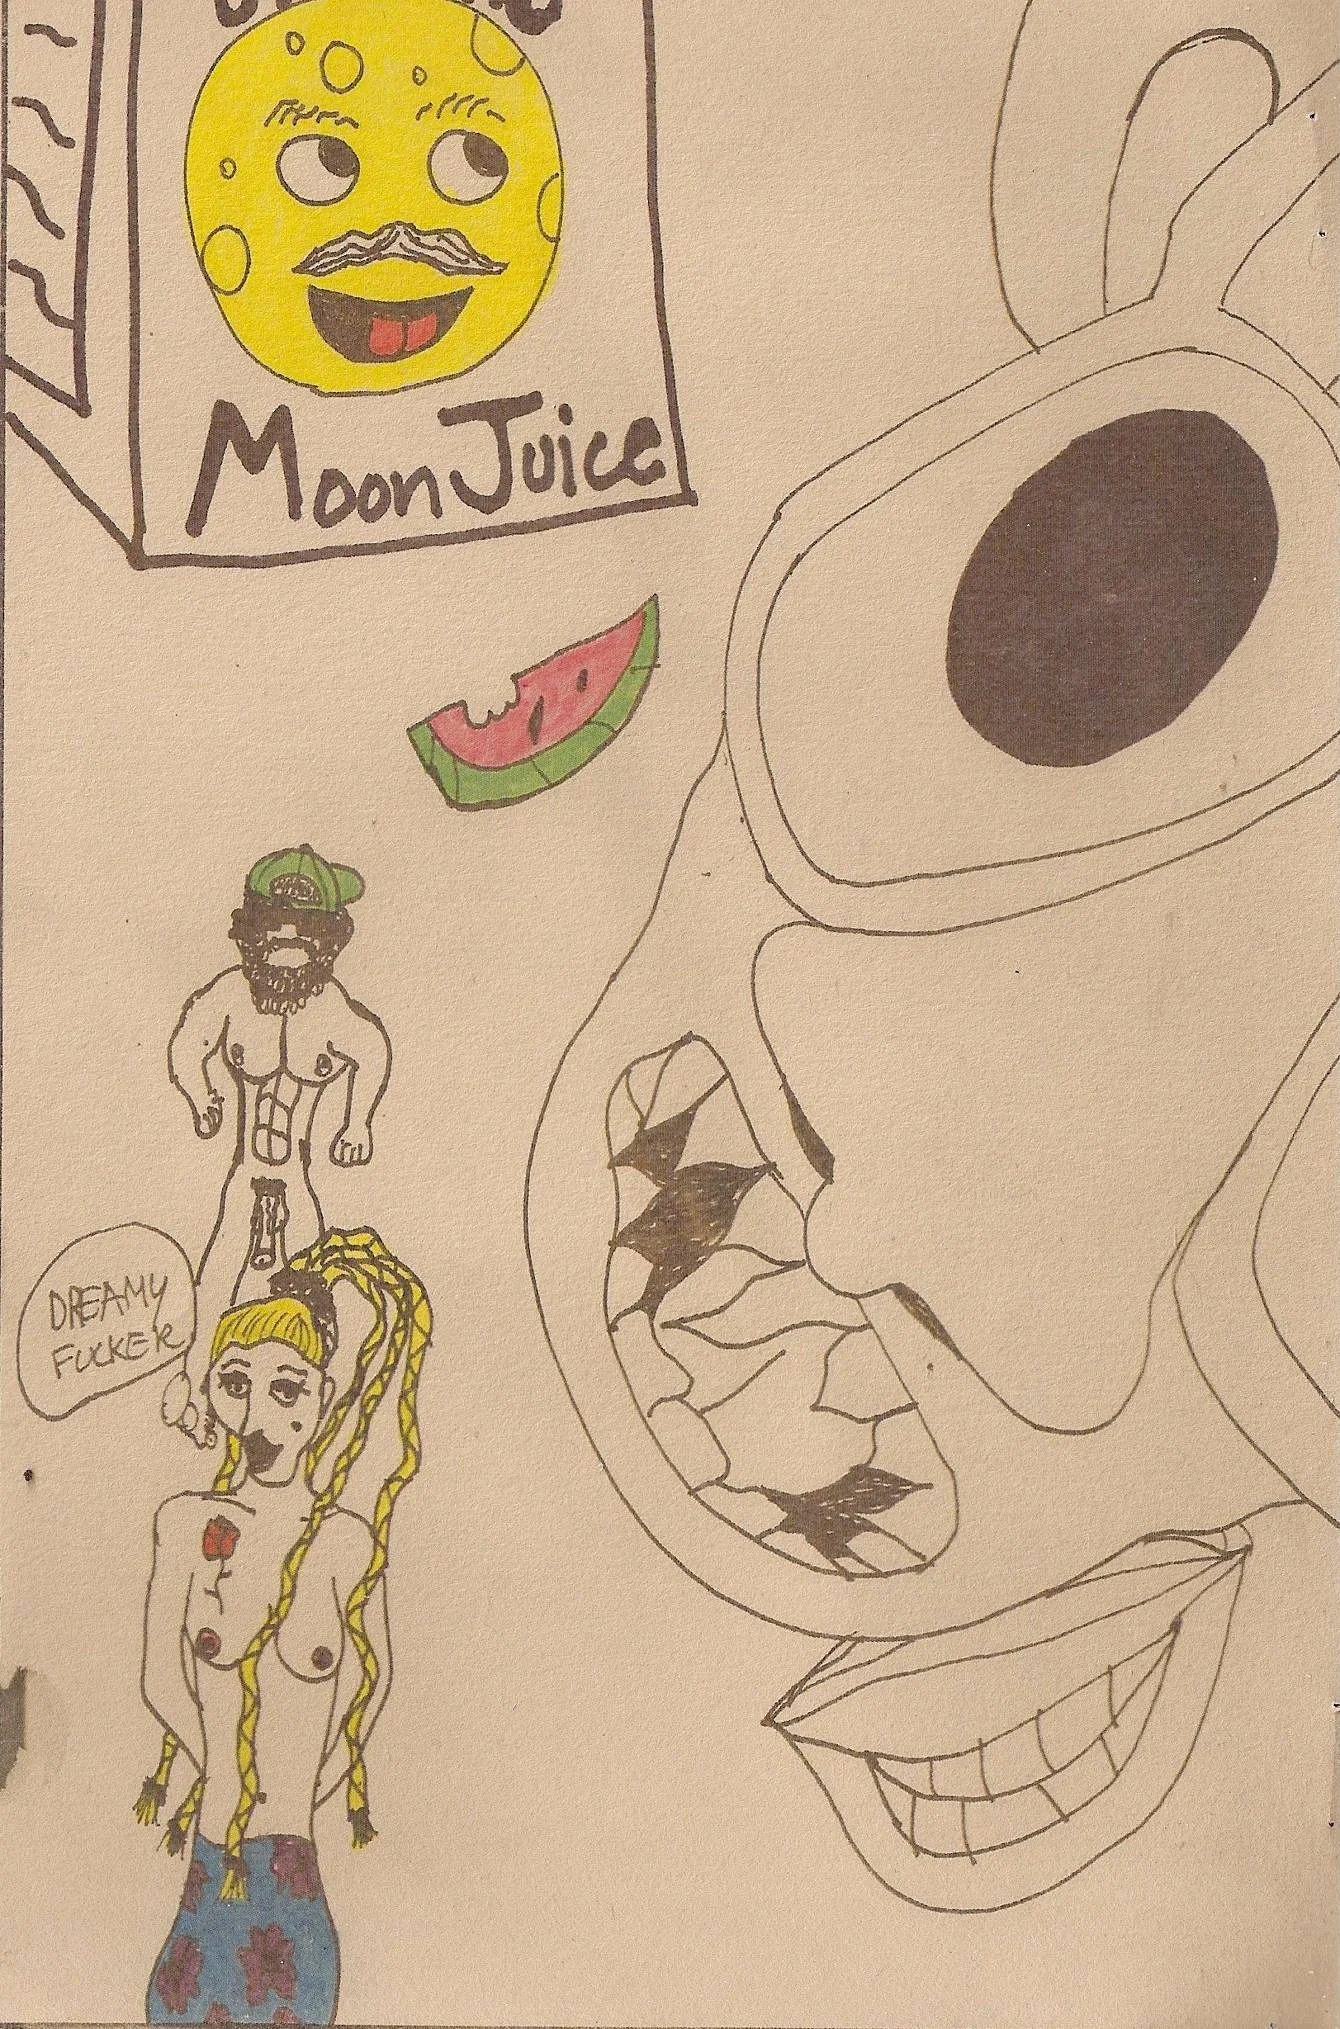 Moon Juice
DREAMY
FUCKER